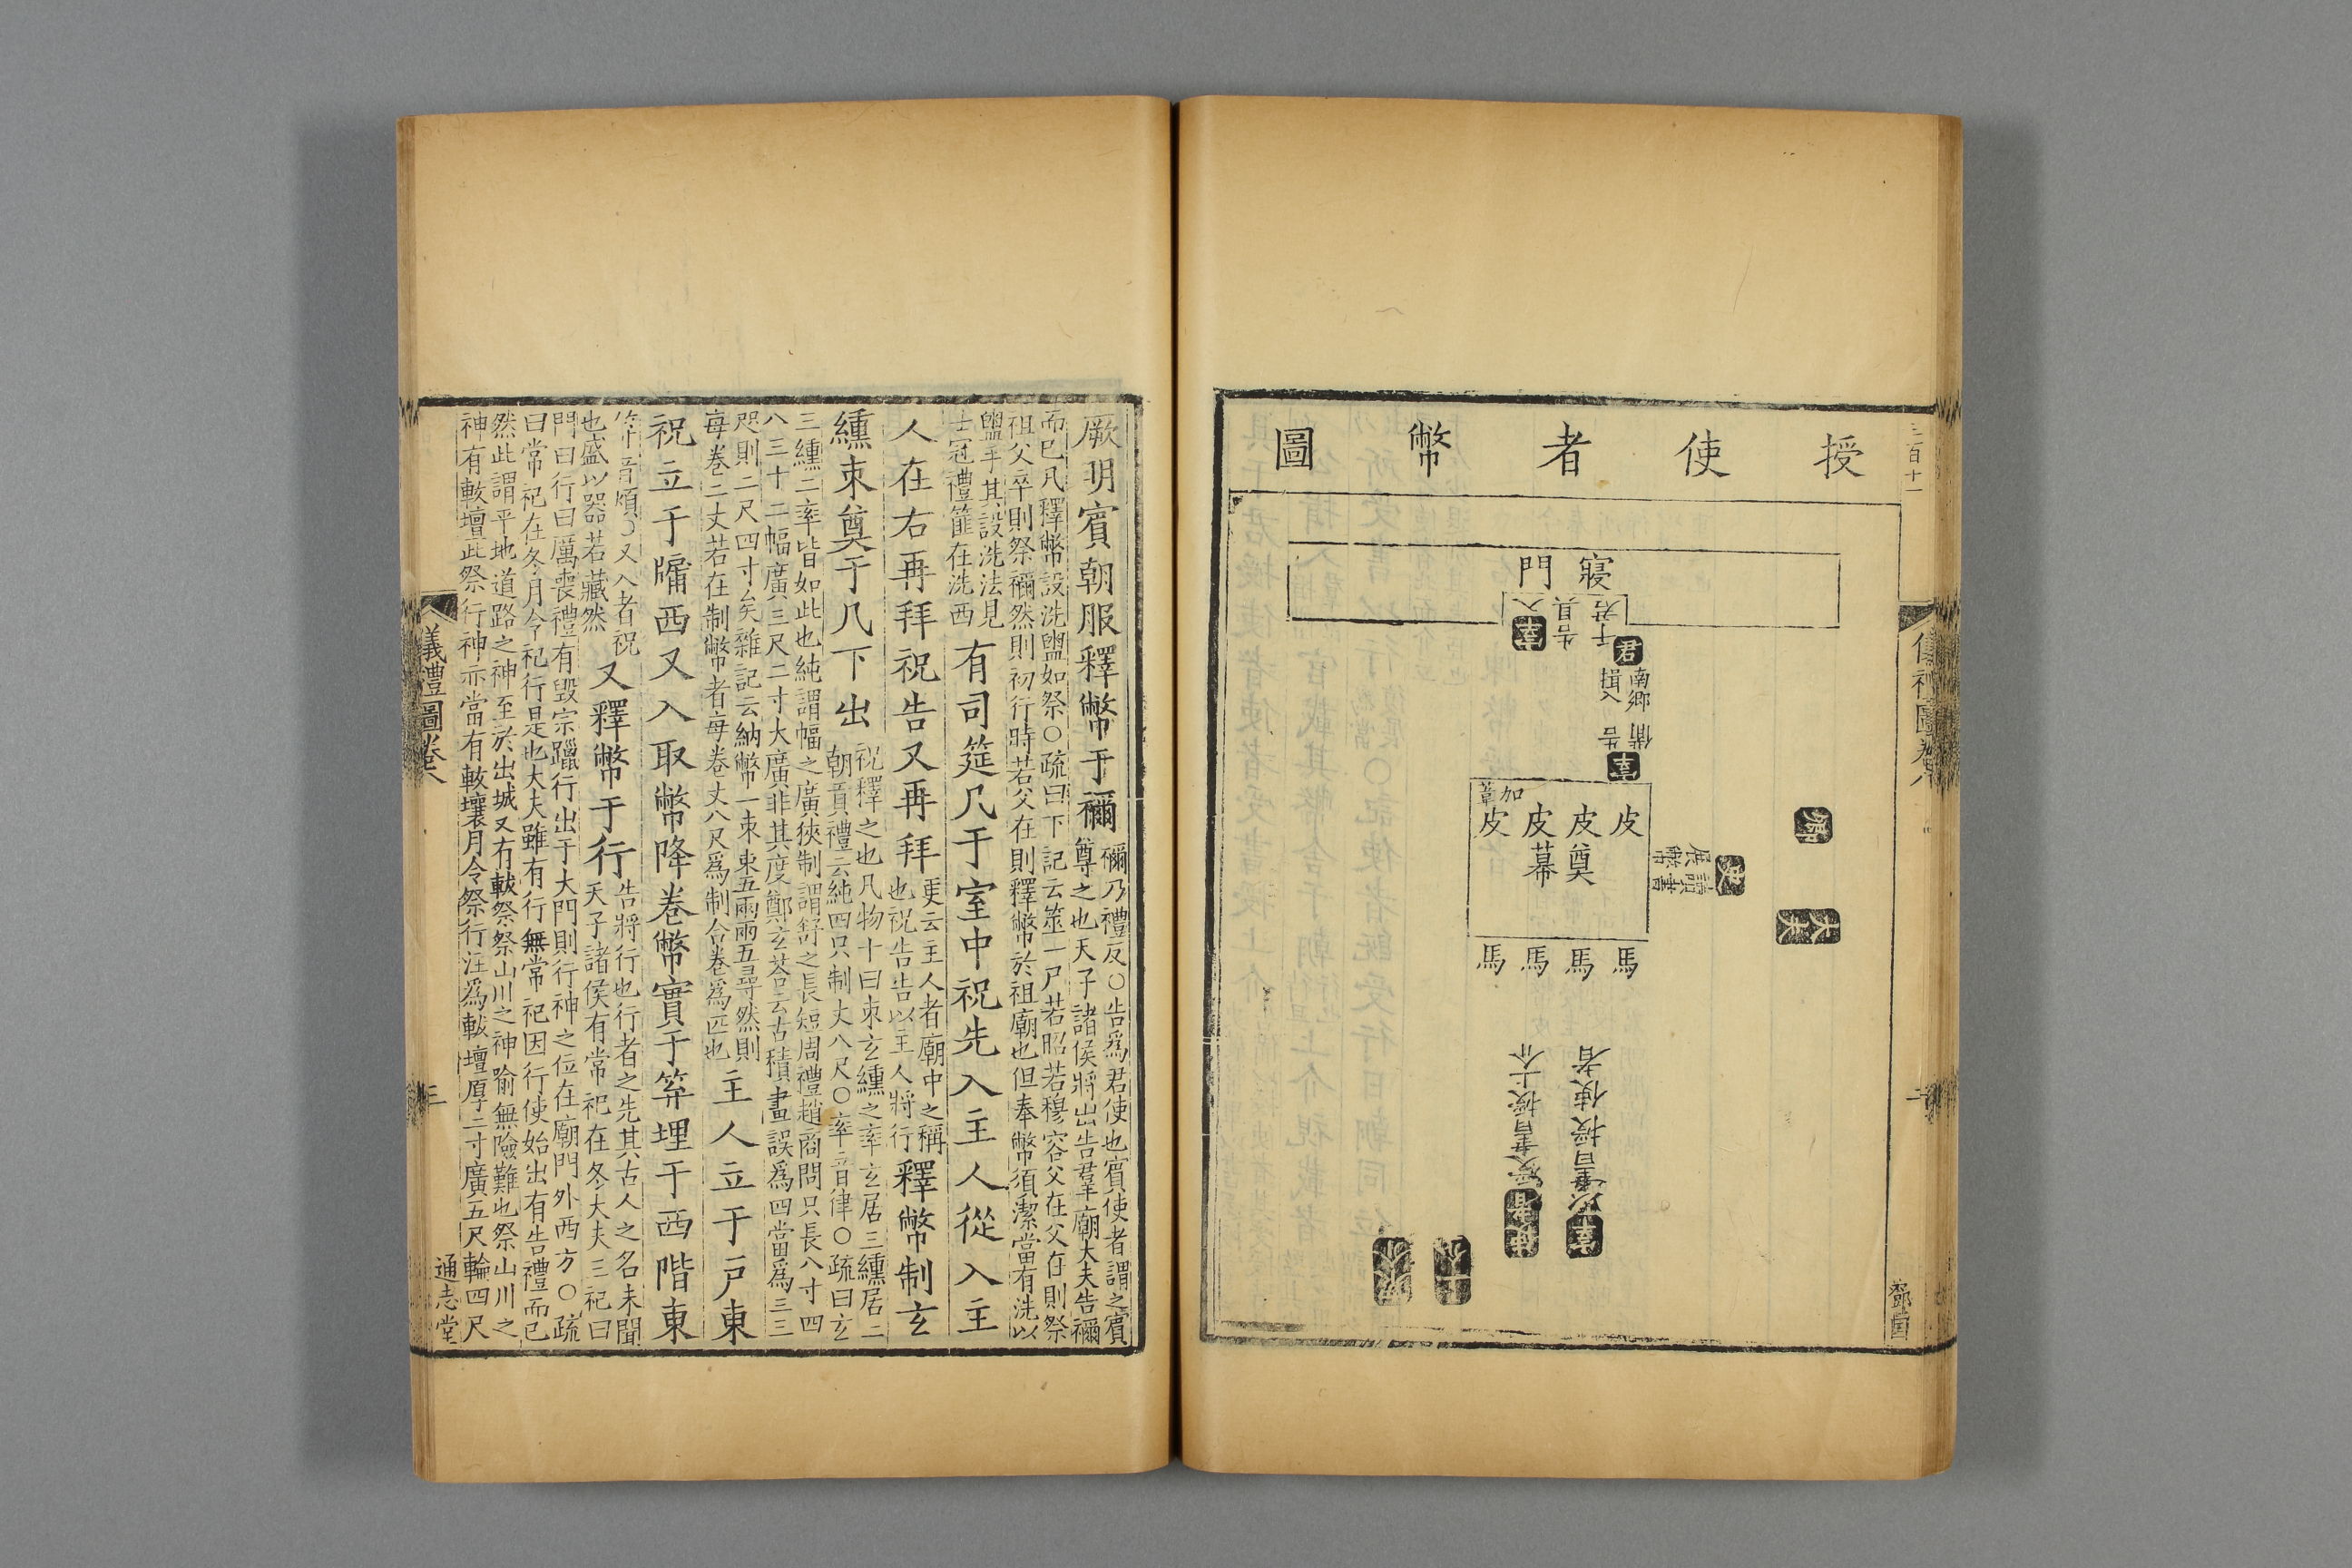 授使者幣圖
三百十一
寢門
君
南鄉
揖入
宰
備
告
宰
入
告具
于君
加
皮皮皮皮
奠
幕
馬馬馬馬
史
讀書
展幣
宰
以書授使者
使者
受書授上介
儀禮圖卷八
二
鄧國
厥明賓朝服釋幣于禰
禰乃禮反○告爲君使也賓使者謂之賓
尊之也天子諸侯將出告羣廟大夫告禰
而已凡釋幣設洗盥如祭○疏曰下記云筮一尸若昭若穆容父在父在則祭
祖父卒則祭禰然則初行時若父在則釋幣於祖廟也但奉幣須潔當有洗以
盥手其設洗法見
士冠禮篚在洗西
有司筵几于室中祝先入主人從入主
人在右再拜祝告又再拜
更云主人者廟中之稱
也祝告告以主人將行
釋幣制玄
纁束奠于几下出
祝釋之也凡物十曰束玄纁之率玄居三纁居二
朝貢禮云純四只制丈八尺○率音律○疏曰玄
三纁二率皆如此也純謂幅之廣狹制謂舒之長短周禮趙商問只長八寸四
八三十二幅廣三尺二寸大廣非其度鄭玄荅云古積畫誤爲四當爲三三
咫則二尺四寸矣雜記云納幣一束束五兩兩五尋然則
每卷二丈若在制幣者每卷丈八尺爲制合卷爲匹也
主人立于戶東
祝立于牖西又入取幣降卷幣實于笲埋于西階東
音煩○又入者祝
也盛以器若藏然
又釋幣于行
告將行也行者之先其古人之名未聞
天子諸侯有常祀在冬大夫三祀曰
門曰行曰厲喪禮有毀宗躐行出于大門則行神之位在廟門外西方○疏
曰常祀在冬月令祀行是也大夫雖有行無常祀因行使始出有告禮而已
然此謂平地道路之神至於出城又有軷祭祭山川之神喻無險難也祭山川之
神有軷壇此祭行神亦當有軷壤月令祭行注爲軷壇厚二寸廣五尺輪四尺
儀禮圖卷八
三
通志堂